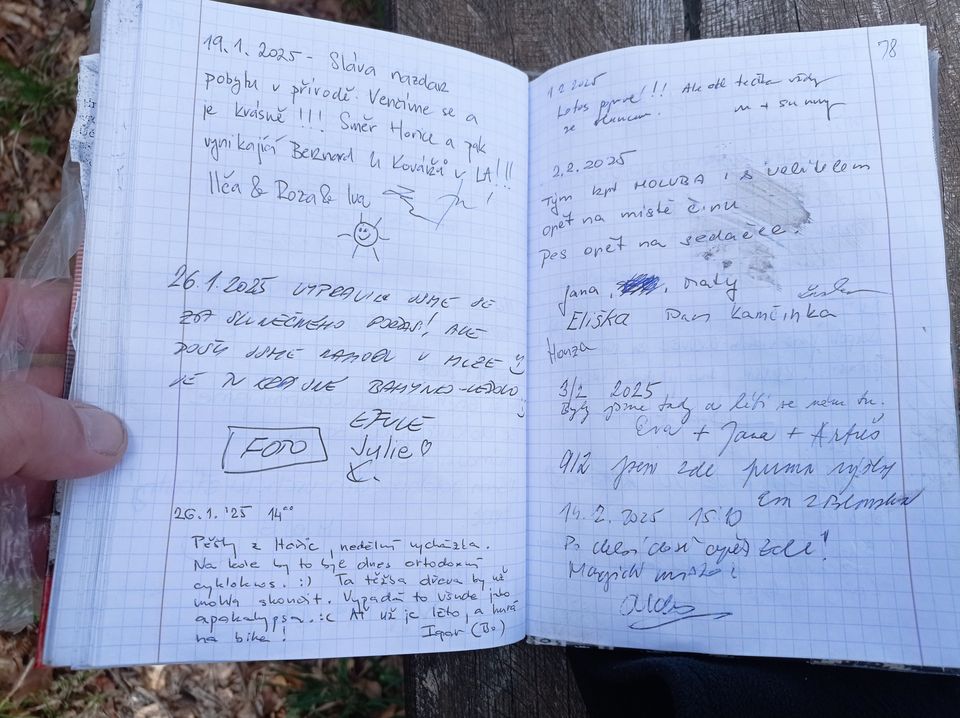 19.1.2025 - Sláva nazdar
pobytu v přírodě. Venčíme se a
je krásně!!! Směr Hořice a pak
vynikající Bernard u Kovářů v LA!!!
Ilča & Roza & Iva
26.1.2025 VYPRAVILI JSME SE
ZA SLUNEČNÉHO POČASÍ, ALE
DOŠLI JSME NAHORU V MLZE
JE TU KRÁSNĚ BAHYNO-LEDOVO
FOTO
Julie
26.1.'25 14⁰⁰
Pěšky z Hořic, nedělní vycházka.
Na kole by to byl dnes ortodoxní
cyklokros. :) Ta těžba dřeva by už
mohla skončit. Vypadá to všude jako
apokalypsa. :( Ať už je léto, a hurá
na bike! Igor (Bo)
78
1.2.2025
Letos poprvé!!! Ale vždy
se sluncem!
2.2.2025
Tým kpt HOLUBA i s velitelem
opět na místě činu
Pes opět na sedačce.
Jana,
Eliška Dan Kamčinka
Honza
3/2 2025
Byly jsme tady a líbí se nám tu.
Eva + Jana + Artuš
9/2 jsem zde
14.2.2025 15:10
Po delší době opět zde!
Magické místo!